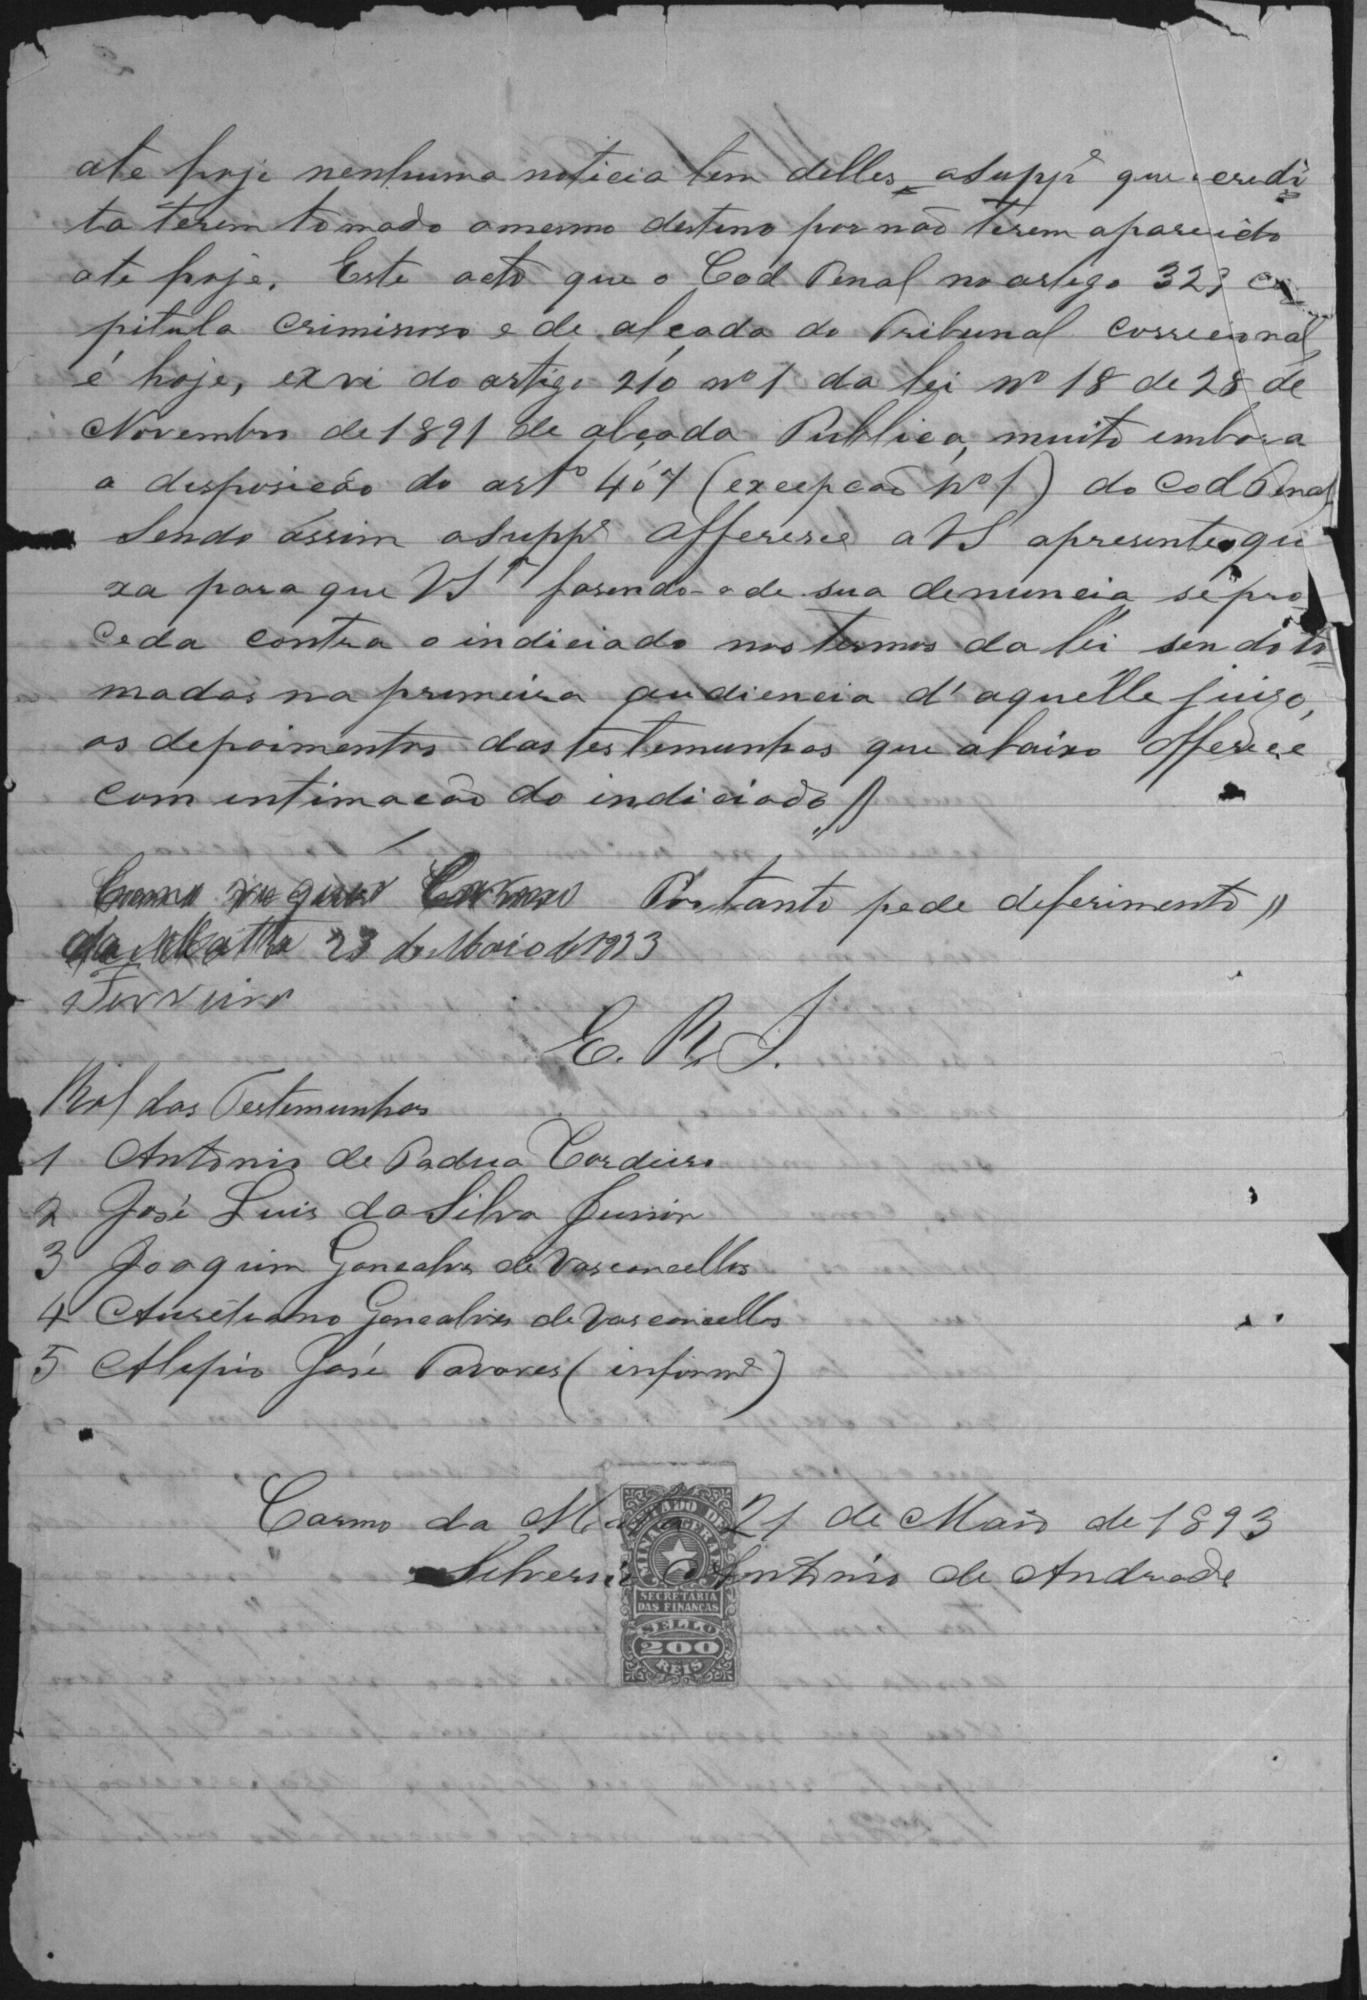 ate hoje nenhuma noticia tem delles, a Suppe que acredi
ta terem tomado o mesmo destino por não terem aparecido
ate hoje. Este acto que o Cod Penal no artigo 329 ca
pitula criminoso e de alçada do Tribunal correcional
é hoje, ex vi do artigo 210 nº 1 da lei nº 18 de 28 de
Novembro de 1891 de alçada Publica, muito embora
a disposição do artº 407 (excepção nº 1) do Cod Penal
Sendo assim a Suppe offerese a VS apresente quei
xa para que VSª fasendo-a de sua denuncia se pro
ceda contra o indiciado nos termos da lei sendo to
madas na primeira audiencia d'aquelle juizo,
os depoimentos das testemunhas que abaixo offerece
com intimação do indiciado //
Como requer Carmo Portanto pede deferimento //
da Matta 23 de Maio de 1893
Ferreira
E. R. J.
Rol das Testemunhas
1 Antonio de Padua Cordeiro
2 José Luis da Silva Junior
3 Joaquim Gonçalves de Vasconcellos
4 Aureliano Gonçalves de Vasconcellos
5 Alipio José Tavares (informe)
Carmo da Matta 21 de Maio de 1893
Silverio Antonio de Andrade
ESTADO DE
MINAS GERAES
SECRETARIA
DAS FINANÇAS
SELLO
200
REIS